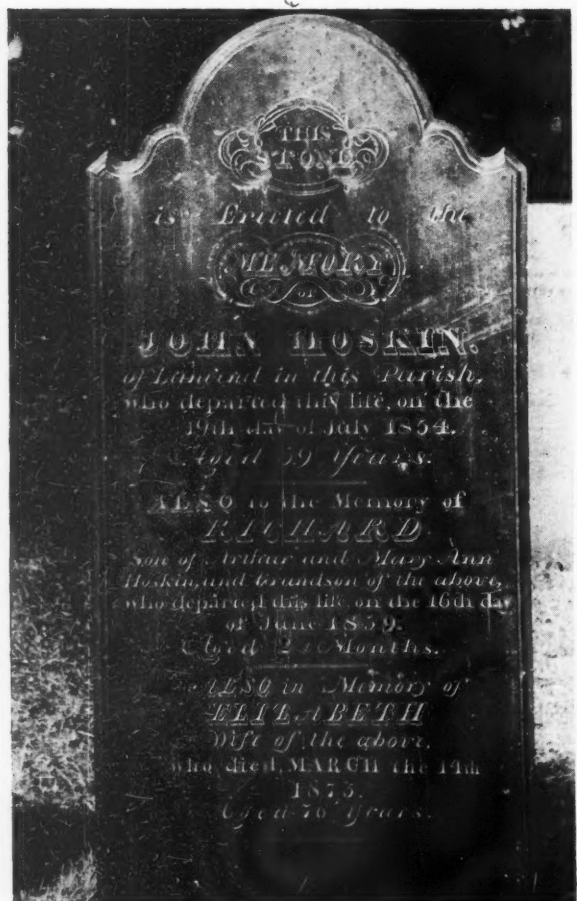 THIS
STONE
is Erected to the
MEMORY
OF
JOHN HOSKIN.
of in this Parish,
who departed this life, on the
19th day of July 1854.
Aged 59 Years.
ALSO to the Memory of
RICHARD
Son of Arthur and Mary Ann
Hoskin, and Grandson of the above,
who departed this life, on the 16th day
of June 1859.
Aged Months.
ALSO in Memory of
ELIZABETH
Wife of the above,
who died, MARCH the 14th
1875.
Aged 76 Years.